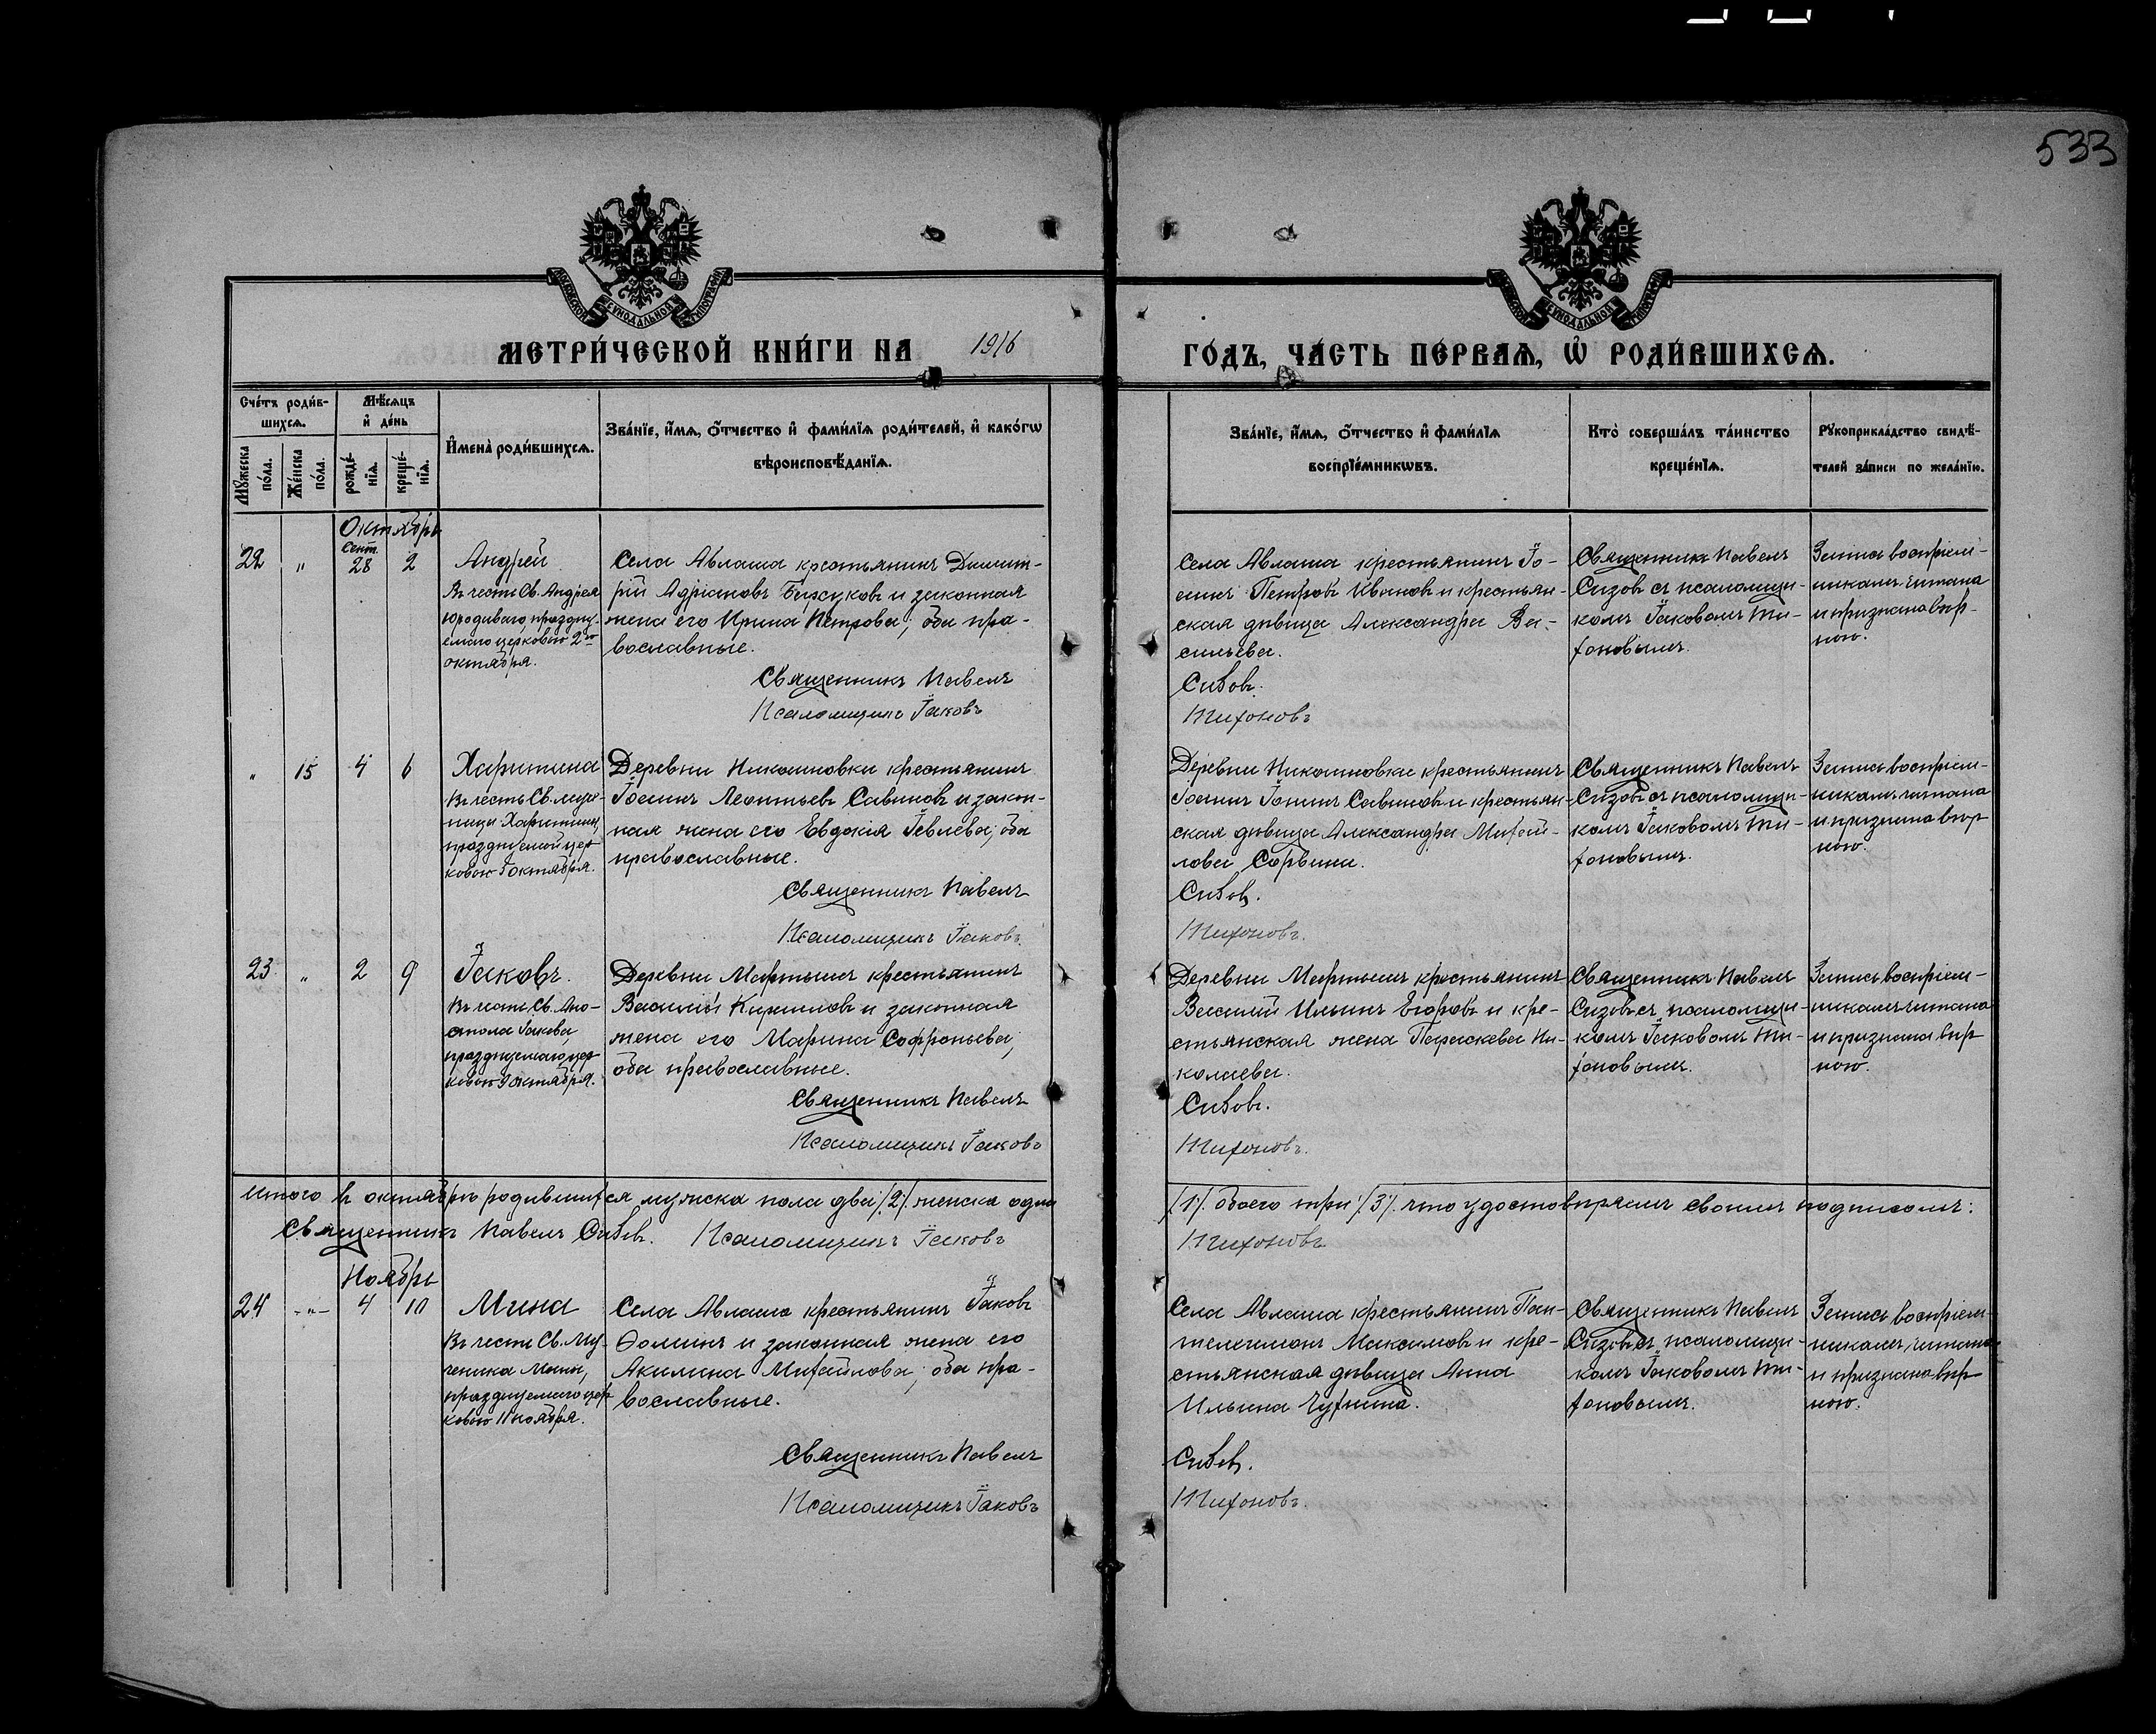 533
МЕТРИ́ЧЕСКОЙ КНИ́ГИ НА 1916 ГО́ДЪ, ЧА́СТЬ ПЕ́РВАѦ, Ѡ҆ РОДИ́ВШИХСѦ.
Сче́тъ роди́в-
шихсѧ.
Мꙋ́жеска по́ла.
Же́нска по́ла.
Мѣ́сѧцъ
и҆ де́нь
рожде́-
нїѧ.
креще́-
нїѧ.
И҆мена̀ роди́вшихсѧ.
Зва́нїе, и҆́мѧ, ѻ҆́тчество и҆ фами́лїѧ роди́телей, и҆ како́гѡ
вѣроисповѣ́данїѧ.
Зва́нїе, и҆́мѧ, ѻ҆́тчество и҆ фами́лїѧ
воспрїе́мникѡвъ.
Кто̀ соверша́лъ та́инство
креще́нїѧ.
Рꙋкоприкла́дство свидѣ́-
телей за́писи по жела́нїю.
Октябрь
22 " Сент. 28 2
Андрей
Въ честь Св. Андрея
Юродиваго, праздну-
емаго церковью 2го
октября.
Села Авлаша крестьянинъ Димит-
рій Адріановъ Барсуковъ и законная
жена его Ирина Петрова; оба пра-
вославные.
Священникъ Павелъ
Псаломщикъ Іаковъ
Села Авлаша крестьянинъ Іо-
аннъ Петровъ Ивановъ и крестьян-
ская дѣвица Александра Ва-
сильева.
Сизовъ.
Тихоновъ
Священникъ Павелъ
Сизовъ съ псаломщи-
комъ Іаковомъ Ти-
хоновымъ.
Запись воспріем-
никамъ читана
и признана вѣр-
ною.
" 15 4 6
Харитина
Въ честь Св. муче-
ницы Харитины,
празднуемой цер
ковью 5 октября.
Деревни Никоиновки крестьянинъ
Іоаннъ Леонтьевъ Савиновъ и закон-
ная жена его Евдокія Іевлева; оба
православные.
Священникъ Павелъ
Псаломщикъ Іаковъ
Деревни Никоиновки крестьянинъ
Іоаннъ Іонинъ Савиновъ и крестьян-
ская дѣвица Александра Михай-
лова Сорвина.
Сизовъ.
Тихоновъ.
Священникъ Павелъ
Сизовъ съ псаломщи-
комъ Іаковомъ Ти-
хоновымъ.
Запись воспріем-
никамъ читана
и признана вѣр
ною.
23 " 2 9
Іаковъ.
Въ честь Св. Апо-
стола Іакова,
празднуемаго цер
ковью 9 октября.
Деревни Мартышъ крестьянинъ
Василій Кириловъ и законная
жена его Марина Софроньева,
оба православные.
Священникъ Павелъ
Псаломщикъ Іаковъ
Деревни Мартышъ крестьянинъ
Василій Ильинъ Егоровъ и кре-
стьянская жена Параскева Ни-
колаева.
Сизовъ.
Тихоновъ.
Священникъ Павелъ
Сизовъ съ псаломщи-
комъ Іаковомъ Ти-
хоновымъ.
Запись воспріем-
никамъ читана
и признана вѣр
ною.
Итого въ октябрѣ родившихся мужска пола два /2/. женска одна /1/. обоего три /3/. что удостовѣряемъ своимъ подписомъ:
Священникъ Павелъ Сизовъ. Псаломщикъ Іаковъ Тихоновъ
Ноябрь
24 -"- 4 10
Мина
Въ честь Св. Му-
ченика Мины,
празднуемаго цер
ковью 11 ноября.
Села Авлаша крестьянинъ Іаковъ
Ѳоминъ и законная жена его
Акилина Михайлова; оба пра-
вославные.
Священникъ Павелъ
Псаломщикъ Іаковъ
Села Авлаша крестьянинъ Пан-
телеимонъ Максимовъ и кре-
стьянская дѣвица Анна
Ильина Чухнина.
Сизовъ.
Тихоновъ.
Священникъ Павелъ
Сизовъ съ псаломщи-
комъ Іаковомъ Ти-
хоновымъ.
Запись воспріем-
никамъ читана
и признана вѣр
ною.